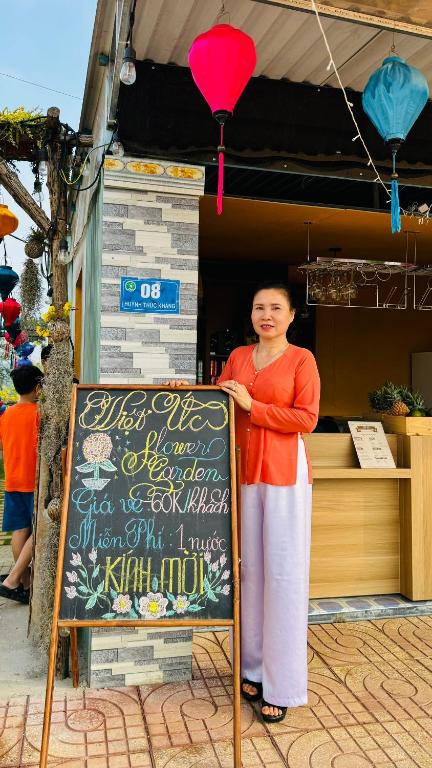 08
HUỲNH THÚC KHÁNG
Việt Úc
Flower
Garden
Giá vé 60K/khách
Miễn Phí 1 nước
KÍNH MỜI